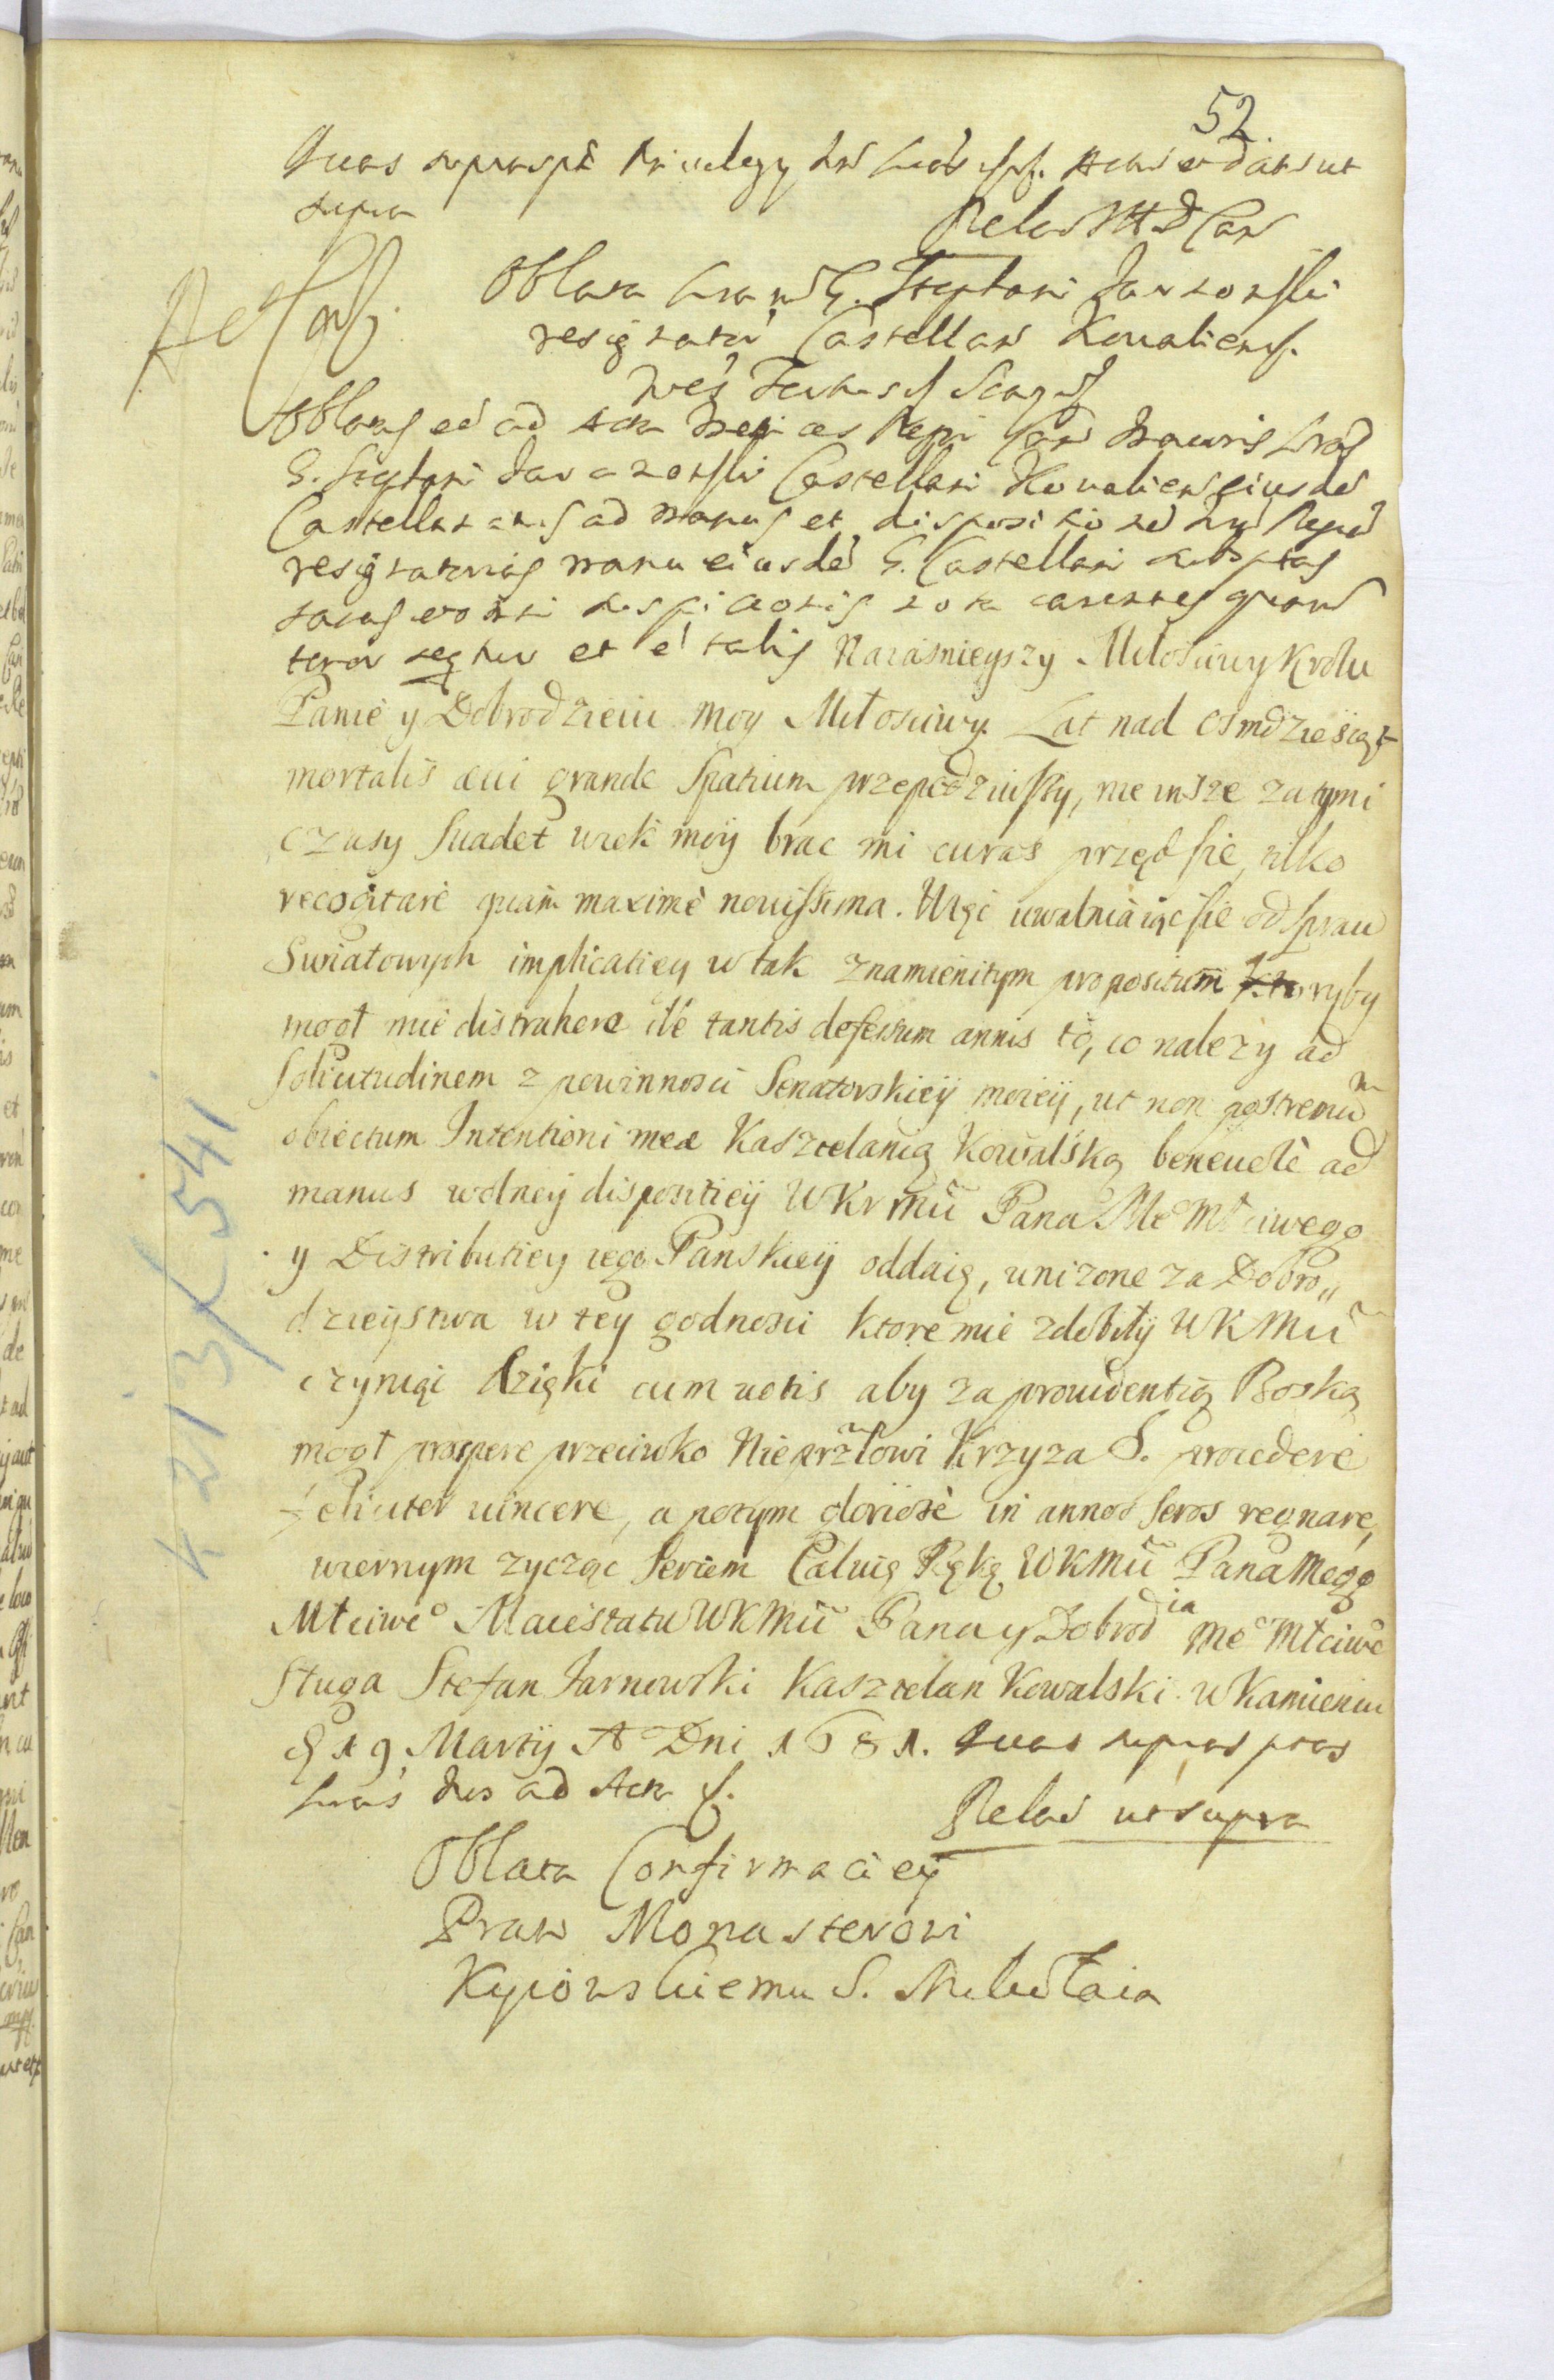 52.
supra
Relao
Oblata Stephani
resignator Castellan Kovaliens.
Oblatas ad Acta
G. Stephani Castellani
Castellan ad manus et dispositio
resignatorias manu eiusde G. Castellani
tenor seqtur et e talis Naiasnieyszy Miłosciwy Krolu
Panie y Dobrodzieiu moy Miłosciwy. Lat nad Osmdziesiąt
mortalis æui grande Spatium przepędziwszy, nie insze za tymi
czasy Suadet wiek moÿ brac mi curas przed sie, tilko
recogitare quam maximè nouissima. Więc uwalniaiąc sie od spraw
Swiatowych implicatiey w tak znamienitym propositum ktoryby
mogł mie distrahere ile tantis defessum annis to, co nalezy ad
Solicitudinem z powinnosci Senatorskieÿ moieÿ, ut non postremū
obiectum Intentioni meæ Kasztelanią Kowalską beneuole ad
manus wolneÿ dispositieÿ WKrMci Pana Me° Młciwego
y Distributiey iego Panskieÿ oddaię, unizone za Dobro„
dzieÿstwa w teÿ godnosci ktore mie zdobiłÿ WKMci
czyniąc dzięki cum uotis aby za prouidentią Boską
mogł prospere przeciwko Nieprzłowi Krzyza S. procedere
feliciter uincere, a potym gloriosè in annos seros regnare,
wiernym zycząc Sercem Całuię Rękę WKMci Pana Mego
Młciwe° Maiestatu WKMci Pana y Dobrodia Me° Młciwe°
Sługa Stefan Jarnowski Kasztelan Kowalski w Kamieniu
19 Martÿ A° Dni 1681. Quas
ad Acta
Relao ut supra
Oblata Confirmacieÿ
Praw Monasterowi
Kyiowskiemu S. Mikołaia
K 213/541